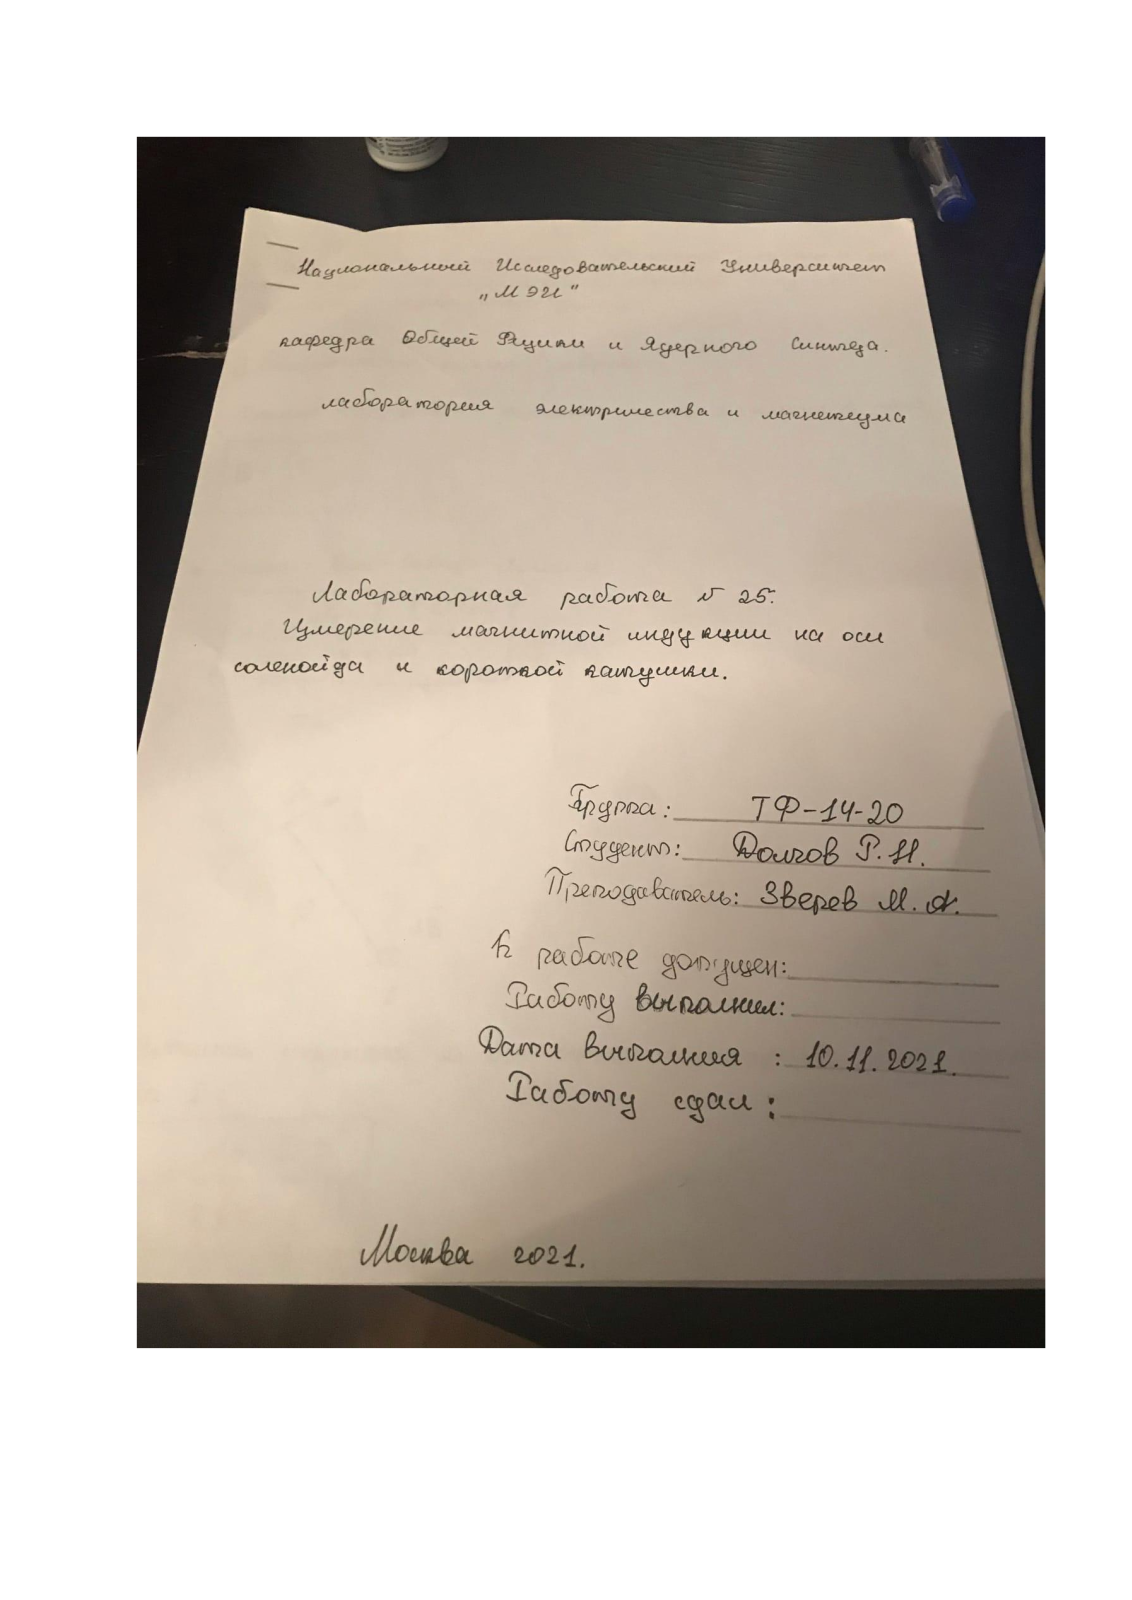 Национальный Исследовательский Университет
„МЭИ"
кафедра Общей Физики и Ядерного Синтеза.
лаборатория электричества и магнетизма
Лабораторная работа № 25.
Измерение магнитной индукции на оси
соленойда и короткой катушки.
Группа: ТФ-14-20
Студент: Долгов Р.Н.
Преподаватель: Зверев М.А.
К работе допущен:
Работу выполнил:
Дата выполния : 10.11.2021.
Работу сдал :
Москва 2021.